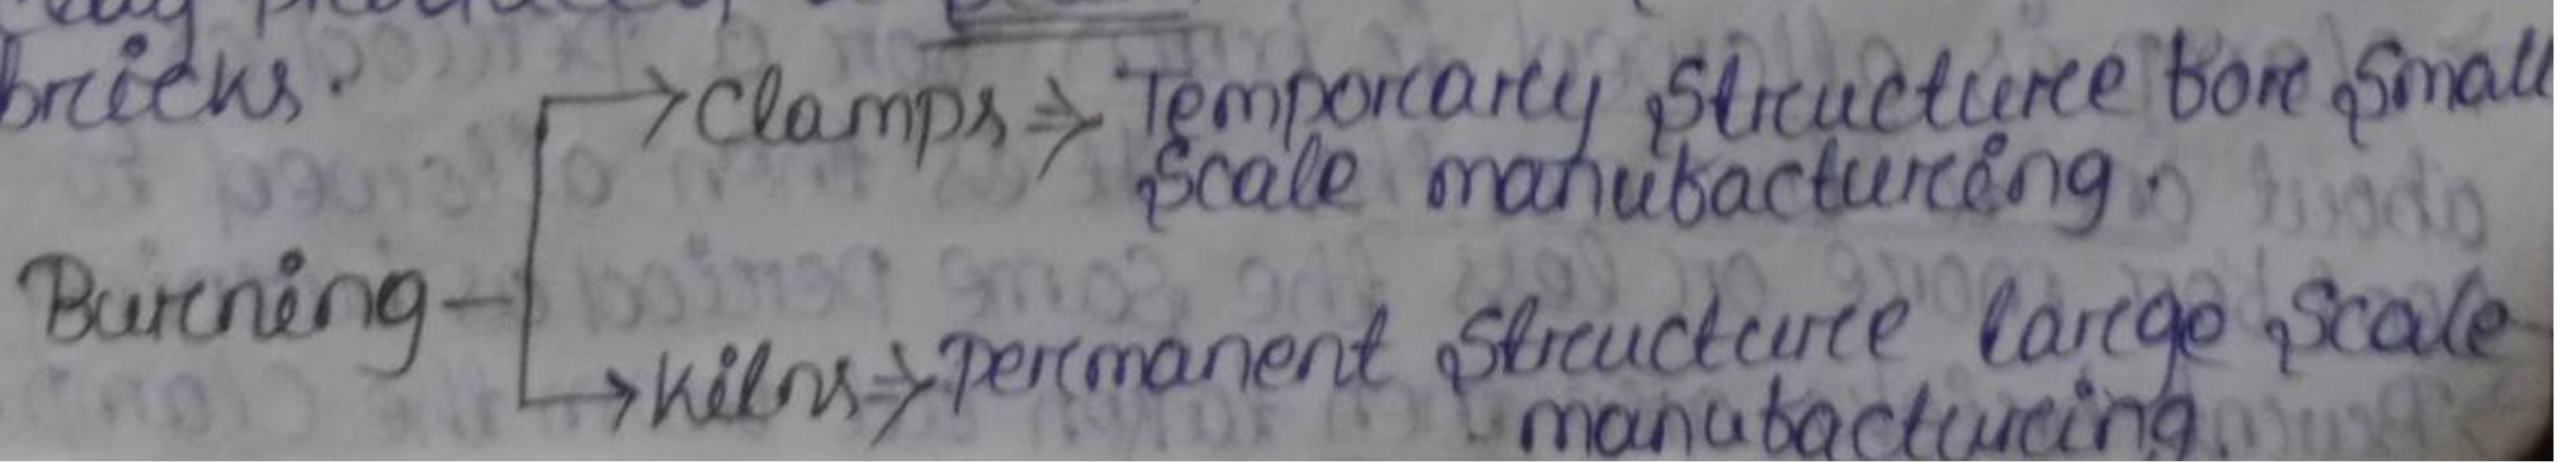 bricks.
Clamps ⇒ Temporary Structure for Small
Scale manufacturing.
Burning
Kilns ⇒ permanent Structure large Scale
manufacturing.